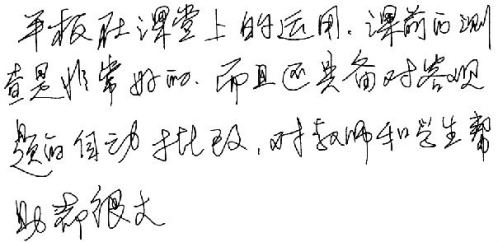 平板在课堂上的运用.课前的测
查是非常好的.而且还具备对客观
题的自动批改,对教师和学生帮
助都很大